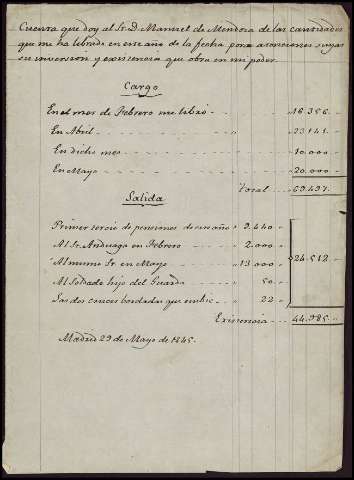 Cuenta que doy al Sr. D. Manuel de Mendoza de las cantidades
que me ha librado en este año de la fecha para atenciones suyas
su inversion y existencia que obra en mi poder.
Cargo
En el mes de Febrero me libró 16.356.
En Abril 23.141.
En dicho mes 10.000
En Mayo 20.000
Total 69.497.
Salida
Primer tercio de pensiones de este año 9.440
Al Sr. Anduaga en Febrero 2.000
Al mismo Sr. en Mayo 13.000 24.512
Al Soldado hijo del Guarda 50
Las dos cruces bordadas que embié 22
Existencia 44.985.
Madrid 29 de Mayo de 1845.